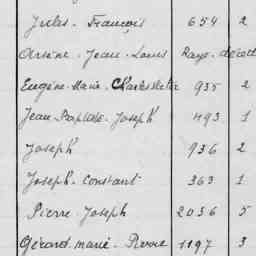 Jules - François 654 2
Arsène - Jean - Louis Rayé
Eugène - Marie - Charles 935 2
Jean - Baptiste - Joseph 493 1
Joseph 936 2
Joseph - Constant 363 1
Pierre - Joseph 2036 5
Gérard - Marie - Pierre 1197 3